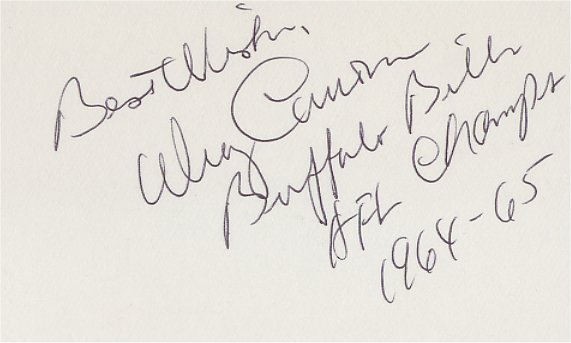 Best Wishes,
Wray Carlton
Buffalo Bills
AFL Champs
1964-65